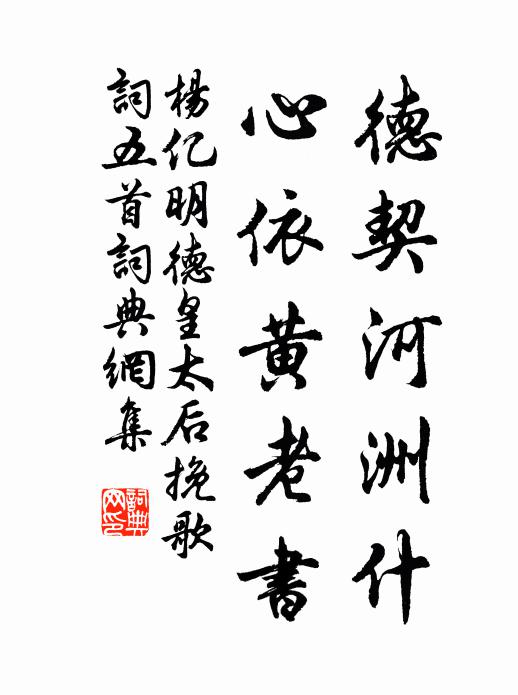 德契河洲什
心依黄老書
楊亿明德皇太后挽歌
詞五首詞典網集
詞典网印